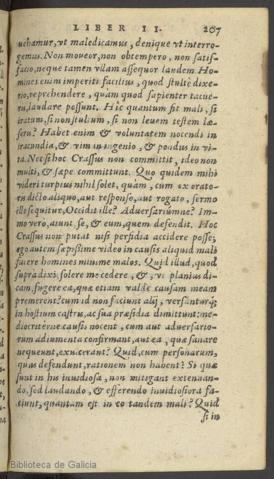 LIBER II. 207
uehamur, vt maledicamus, denique vt interro-
gemus. Non moueor, non obtempero, non satis-
facio, neque tamen vllam assequor laudem. Ho-
mines enim imperiti facilius, quod stulté dixe-
rio, reprehendere, quàm quod sapienter tacue-
ru, laudare possunt. Hic quantum fit mali, si
iratum, si non stultum, si non leuem testem læ-
seru? Habet enim & voluntatem nocendi in
iracundia, & vim in ingenio, & pondus in vi-
ta. Nec si hoc Crassus non committit, ideo non
multi, & sæpe committunt. Quo quidem mihi
videri turpius nihil solet, quàm, cum ex orato-
ris dicto aliquo, aut responso, aut rogato, sermo
ille sequitur, Occidit ille? Aduersariumne? Im-
mo vero, aiunt, se, & eum, quem defendit. Hoc
Crassus non putat nisi perfidia accidere posse;
ego autem sæpissime video in causis aliquid mali
facere homines minime malos. Quid illud, quod
supra dixi, solere me cedere, &, vt planius di-
cam, fugere ea, quæ etiam valde causam meam
premerent? cum id non faciunt alij, versanturq;
in hostium castris, ac sua præsidia dimittunt: me-
diocriterne causis nocent, cum aut aduersario-
rum adiumenta confirmant, aut ea, quæ sanare
nequeunt, exulcerant? Quid, cum personarum,
quas defendunt, rationem non habent? Si quæ
sunt in his inuidiosa, non mitigant extenuan-
do, sed laudando, & efferendo inuidiosiora fa-
ciunt, quantum est in eo tandem mali? Quid
si in
Biblioteca de Galicia